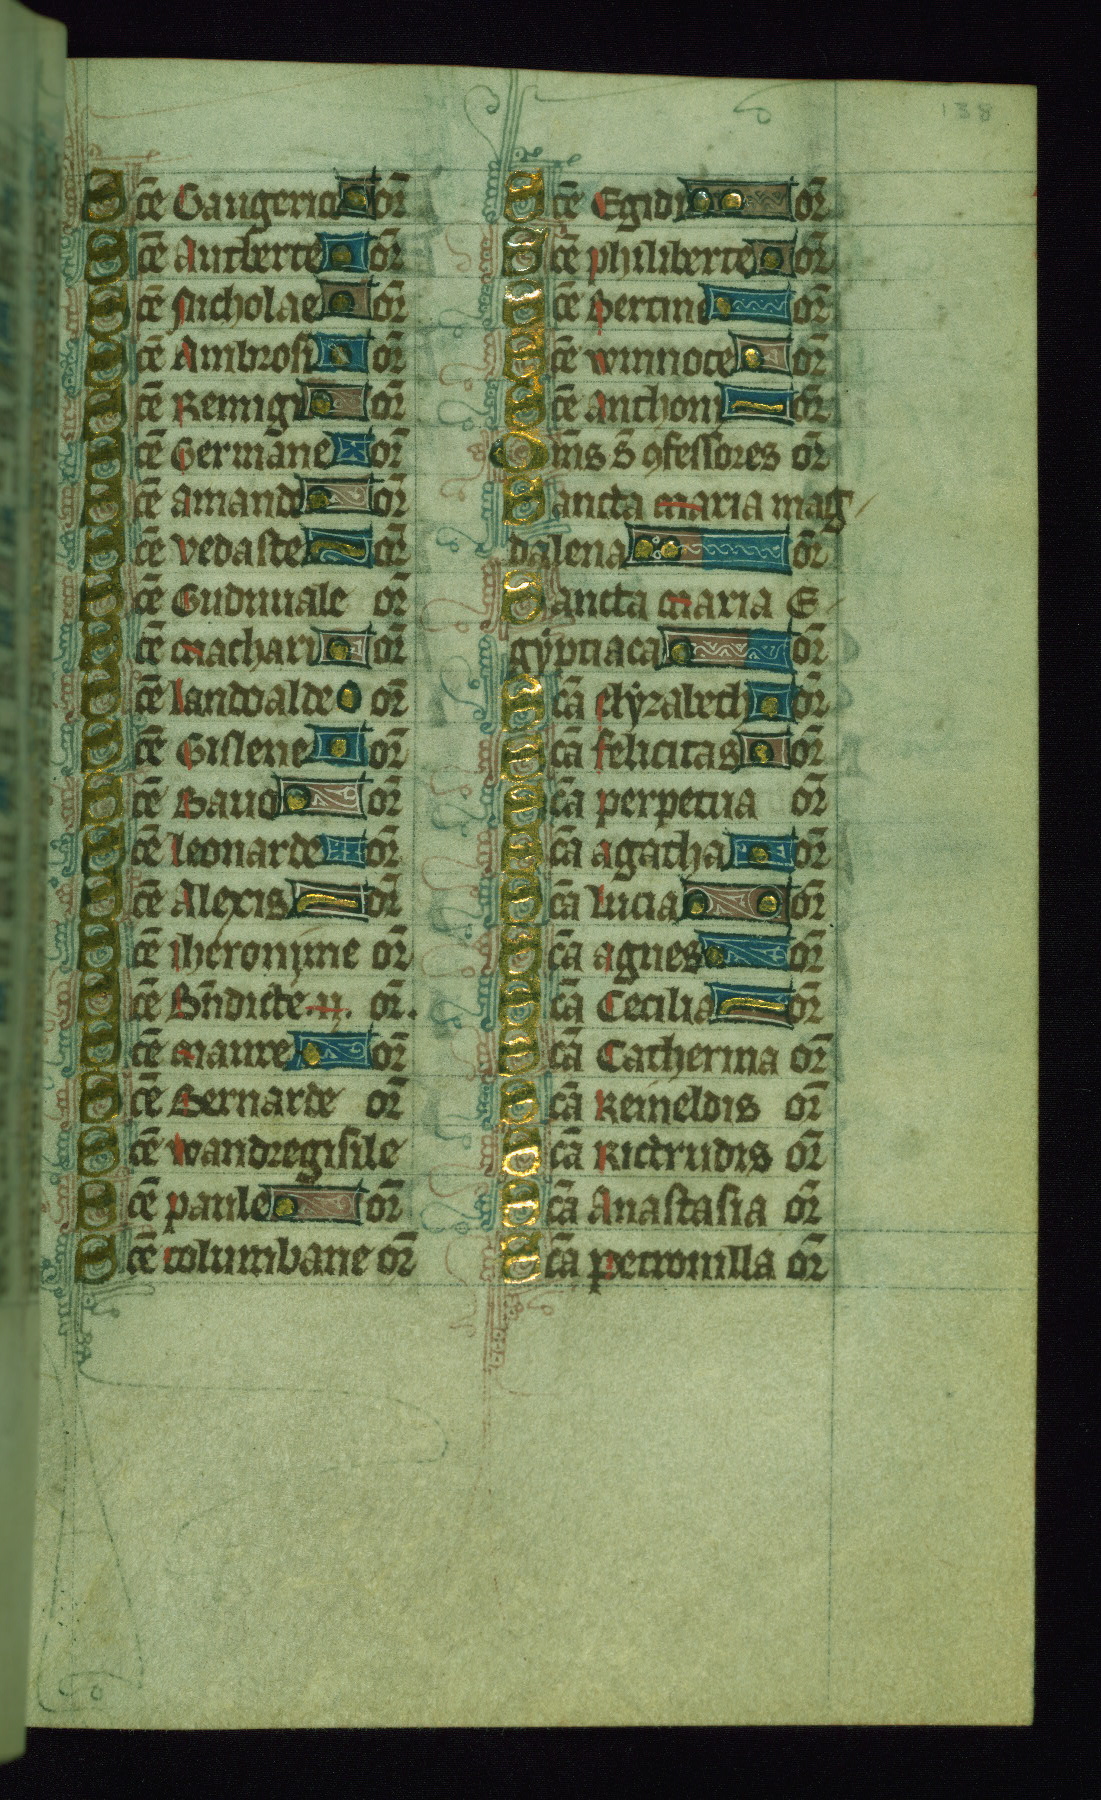 138
Sce᷒ Gaugerice or᷒
Sce᷒ Autberte or᷒
Sce᷒ Nicholae or᷒
Sce᷒ Ambrosi or᷒
Sce᷒ Remigi or᷒
Sce᷒ Germane or᷒
Sce᷒ Amande or᷒
Sce᷒ Vedaste or᷒
Sce᷒ Gudwale or᷒
Sce᷒ Machari or᷒
Sce᷒ Landoalde or᷒
Sce᷒ Gislene or᷒
Sce᷒ Bauo or᷒
Sce᷒ Leonarde or᷒
Sce᷒ Alexis or᷒
Sce᷒ iheronime or᷒
Sce᷒ Bn̄dicte .ii. or᷒.
Sce᷒ Maure or᷒
Sce᷒ Bernarde or᷒
Sce᷒ wandregisile
Sce᷒ paule or᷒
Sce᷒ columbane or᷒
Sce᷒ Egidi or᷒
Sce᷒ philiberte or᷒
Sce᷒ Bertine or᷒
Sce᷒ winnoce or᷒
Sce᷒ Anthoni or᷒
Om̄s s̄ ꝯfessores or᷒
Sancta Maria mag
dalena or᷒
Sancta Maria E
gẏptiaca or᷒
Scā elẏzabeth or᷒
Scā felicitas or᷒
Scā perpetua or᷒
Scā agatha or᷒
Scā Lucia or᷒
Scā agnes or᷒
Scā Cecilia or᷒
Scā Catherina or᷒
Scā Reineldis or᷒
Scā Rictrudis or᷒
Scā Anastasia or᷒
Scā petronilla or᷒